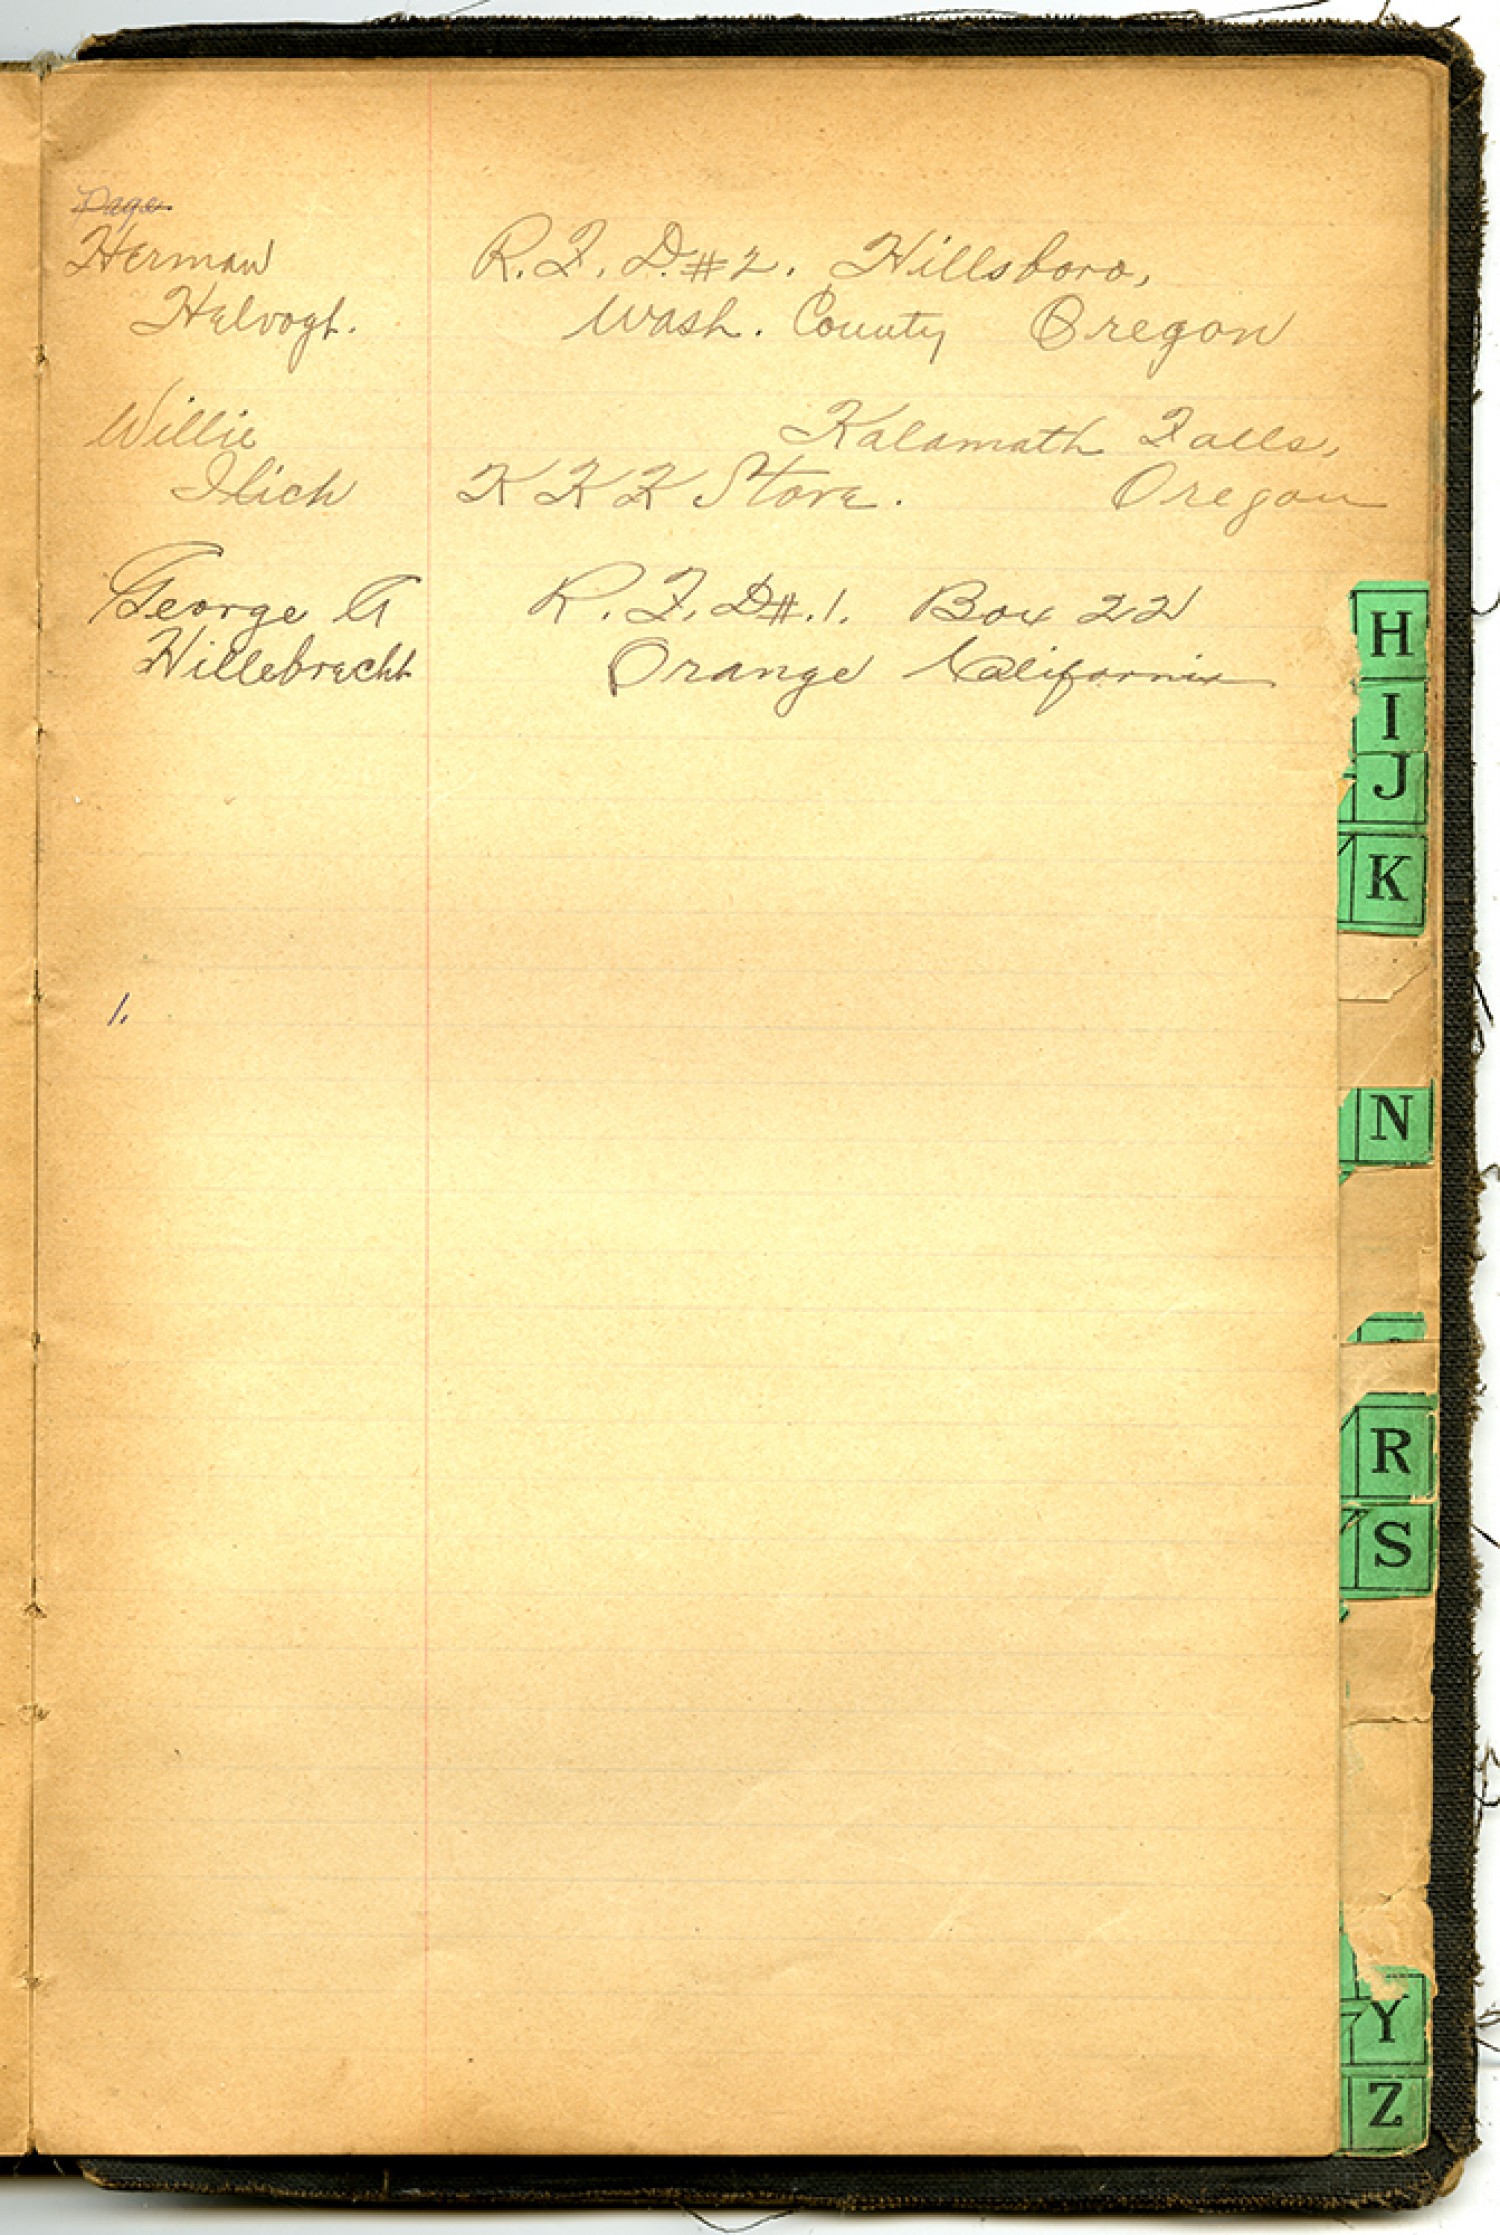 Page
Herman R. F. D. #2. Hillsboro,
Helvogt. Wash. County Oregon
Willie Kalamath Falls,
Ilich K K K Store. Oregon
George A R. F. D #.1. Box 22
Hillebrecht Orange California
1.
H
I
J
K
N
R
S
Y
Z